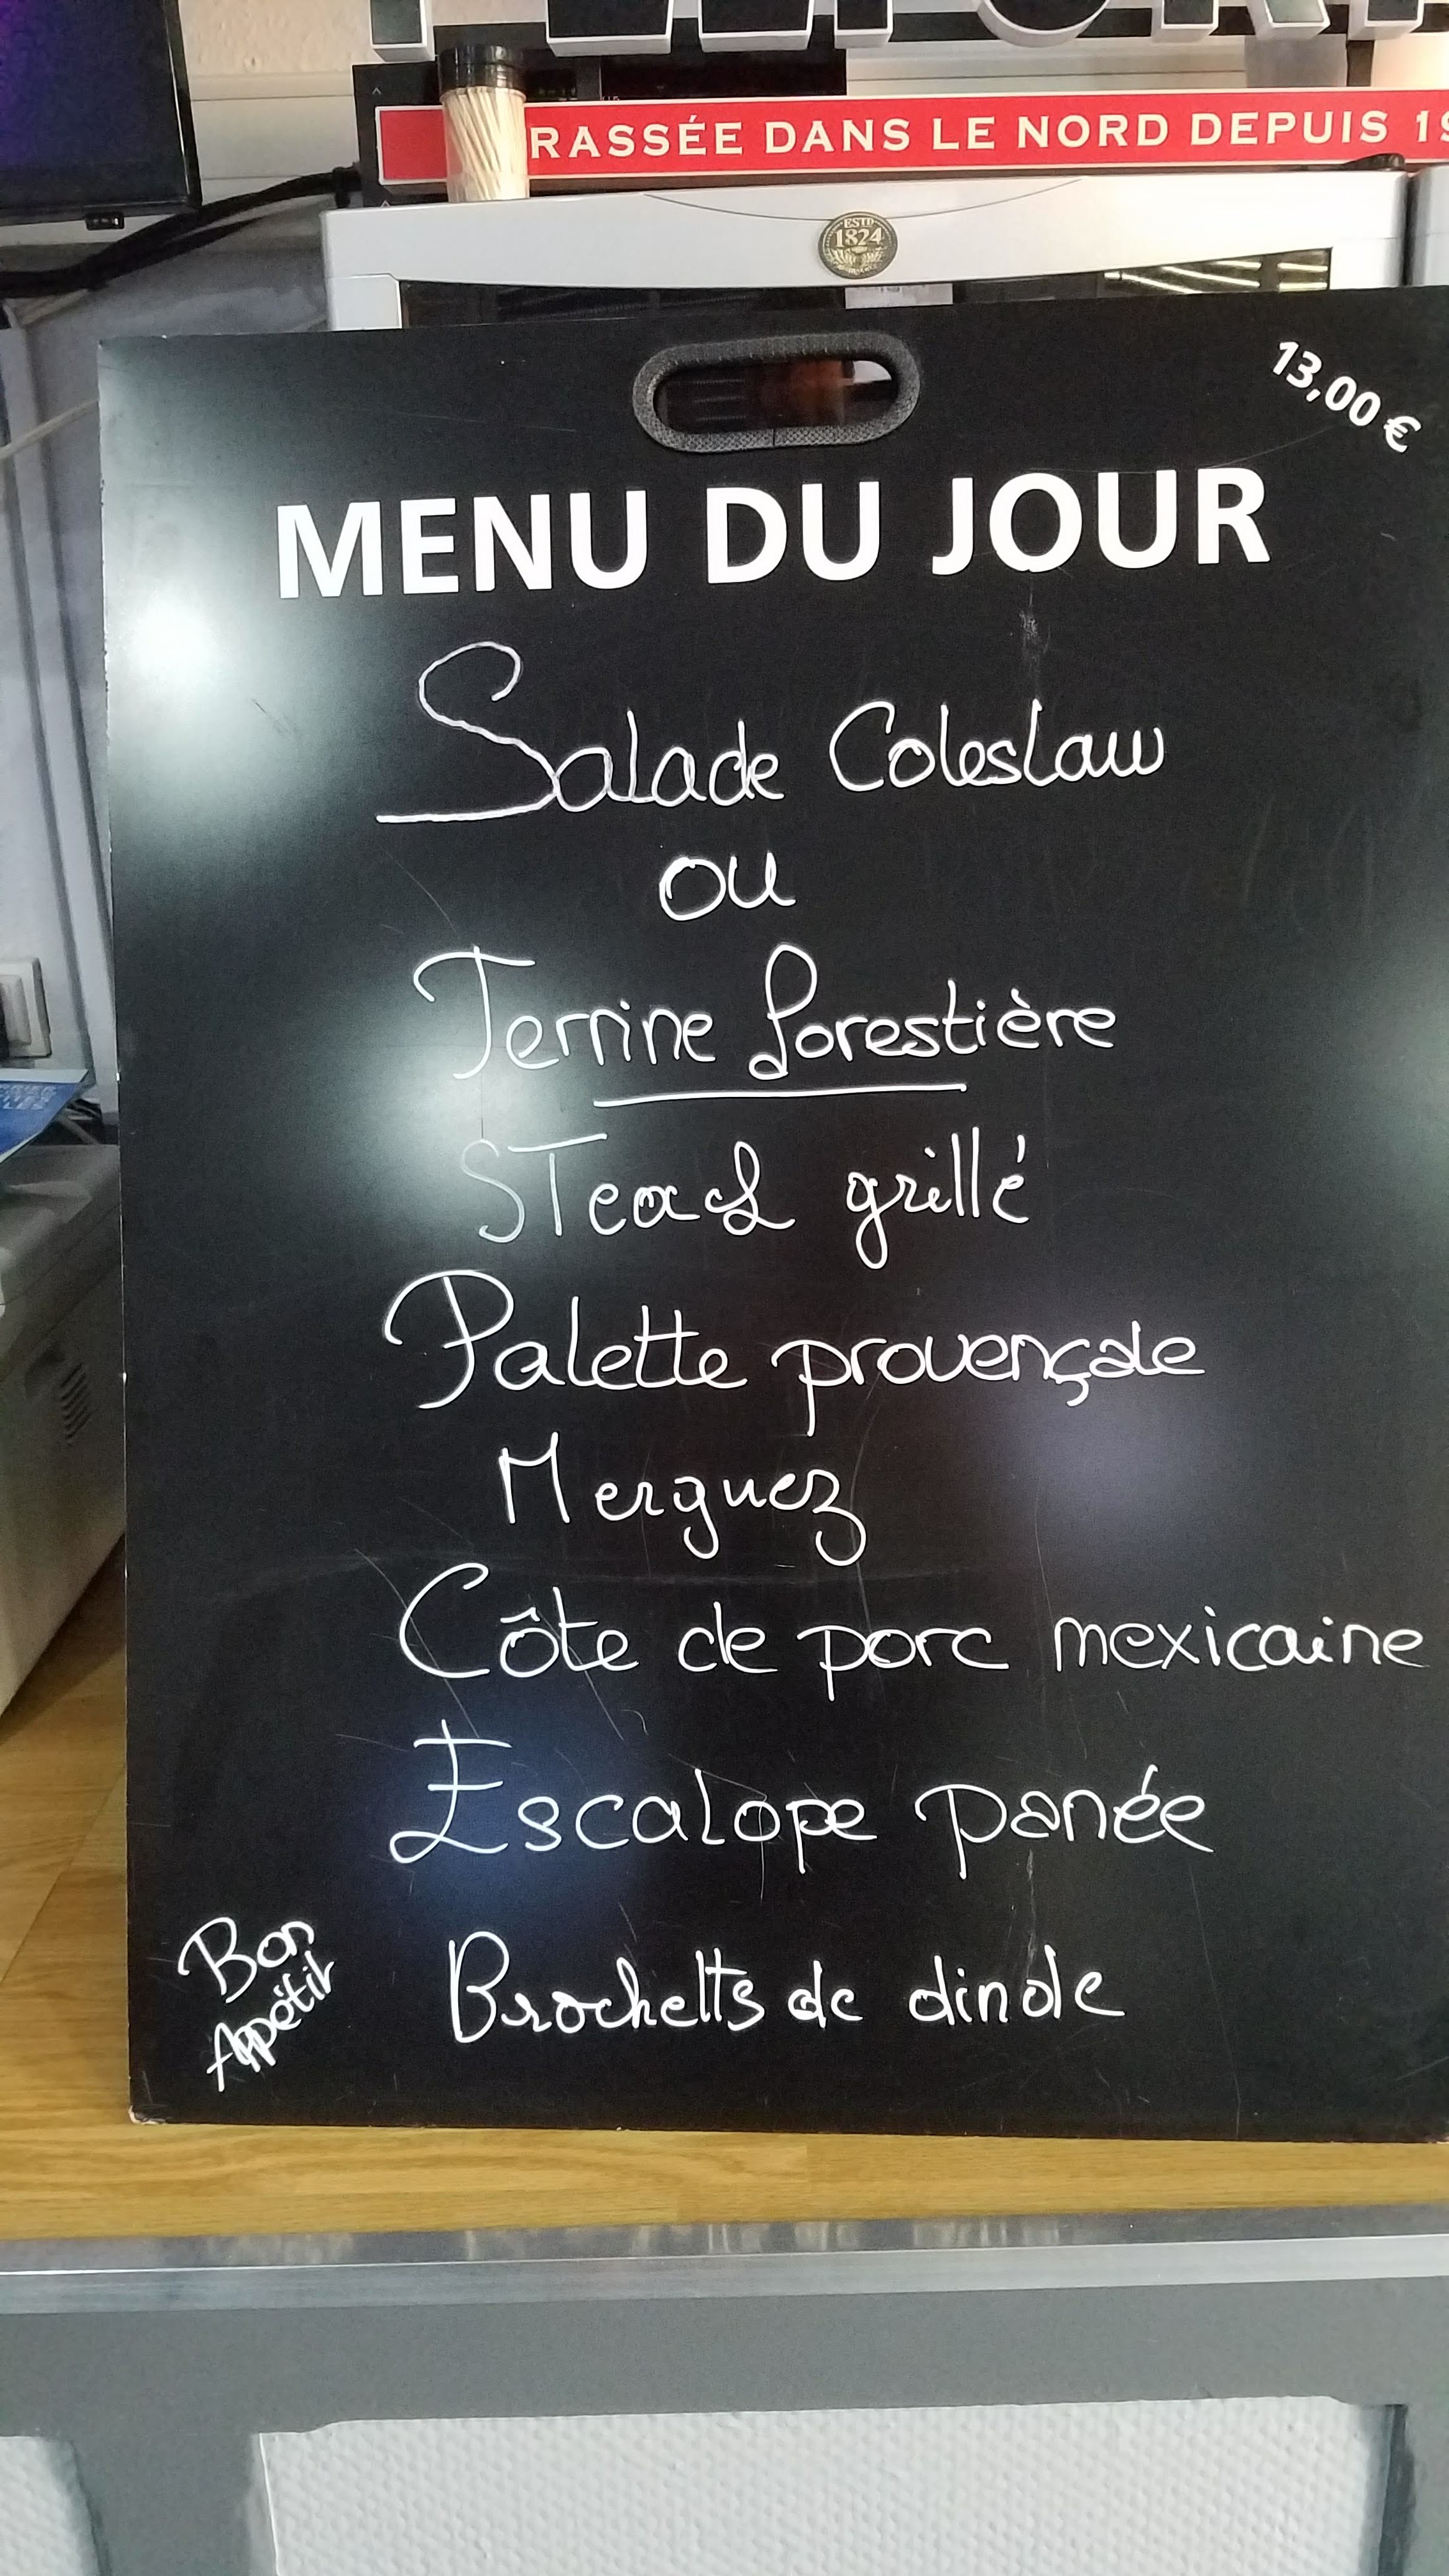 RASSÉE DANS LE NORD DEPUIS 19
ESTD
1824
13,00 €
MENU DU JOUR
Salade Coleslaw
ou
Terrine forestière
STeack grillé
Palette provençale
Merguez
Côte de porc mexicaine
Escalope panée
Brochetts de dinde
Bon
Appétit